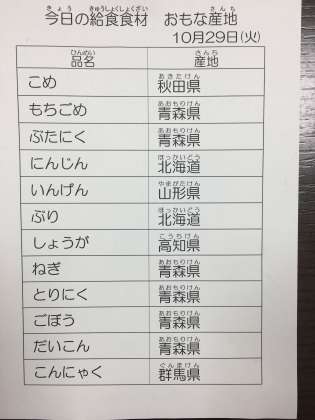 今日の給食食材　おもな産地
10月29日(火)
品名 産地
こめ 秋田県
もちごめ 青森県
ぶたにく 青森県
にんじん 北海道
いんげん 山形県
ぶり 北海道
しょうが 高知県
ねぎ 青森県
とりにく 青森県
ごぼう 青森県
だいこん 青森県
こんにゃく 群馬県